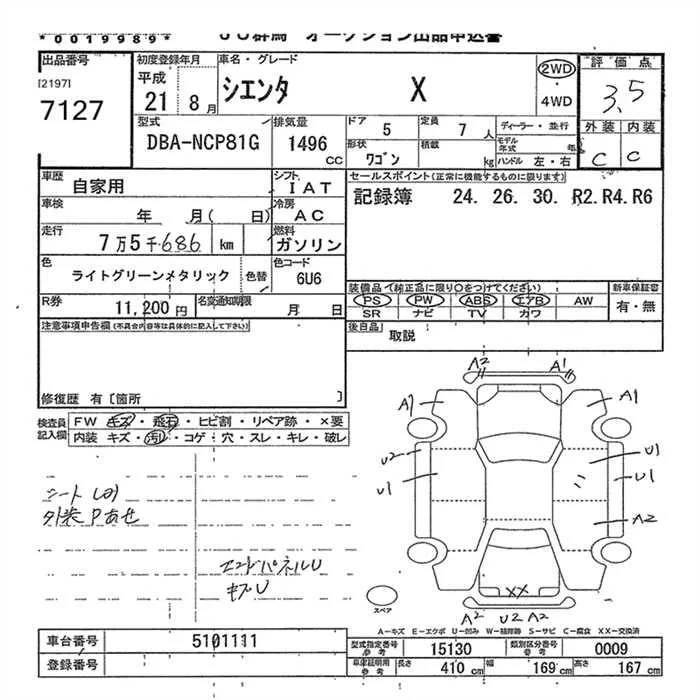 *0019989*
JU群馬 オークション出品申込書
出品番号
[2197]
7127
初度登録年月
平成
21 8月
車名・グレード
シエンタ X
2WD
4WD
評価点
3.5
外装 内装
C C
型式
DBA-NCP81G
排気量
1496
CC
ドア 5
定員 7人
形状 ワゴン
積載 kg
ディーラー・並行
モデル年式 年
ハンドル 左・右
車歴 自家用
シフト IAT
車検 年 月( 日)
冷房 AC
走行 7万5千686 km
燃料 ガソリン
色 ライトグリーンメタリック 色替
色コード 6U6
R券 11,200円
名変通知期限 月 日
セールスポイント(正常に機能するものに限ります)
記録簿 24. 26. 30. R2. R4. R6
装備品(純正品に限り○をつけてください)
PS PW ABS エアB AW
SR ナビ TV カワ
新車保証書
有・無
後日品 取説
注意事項申告欄(不具合内容等は具体的に記入して下さい)
修復歴 有[箇所 ]
検査員記入欄
FW キズ・飛石・ヒビ割・リペア跡・×要
内装 キズ・汚れ・コゲ・穴・スレ・キレ・破レ
A2 A1
A1 A1
U2 U1
U1 U1
A2
シート
外装Pあせ
エンドパネルU
キズU
スペア
XX
A2 U2 A2
A-キズ E-エクボ U-凹み W-補修跡 S-サビ C-腐食 XX-交換済
車台番号 5101111
登録番号
型式指定番号参考 15130
類別区分番号参考 0009
車庫証明用参考 長さ 410cm 幅 169cm 高さ 167cm